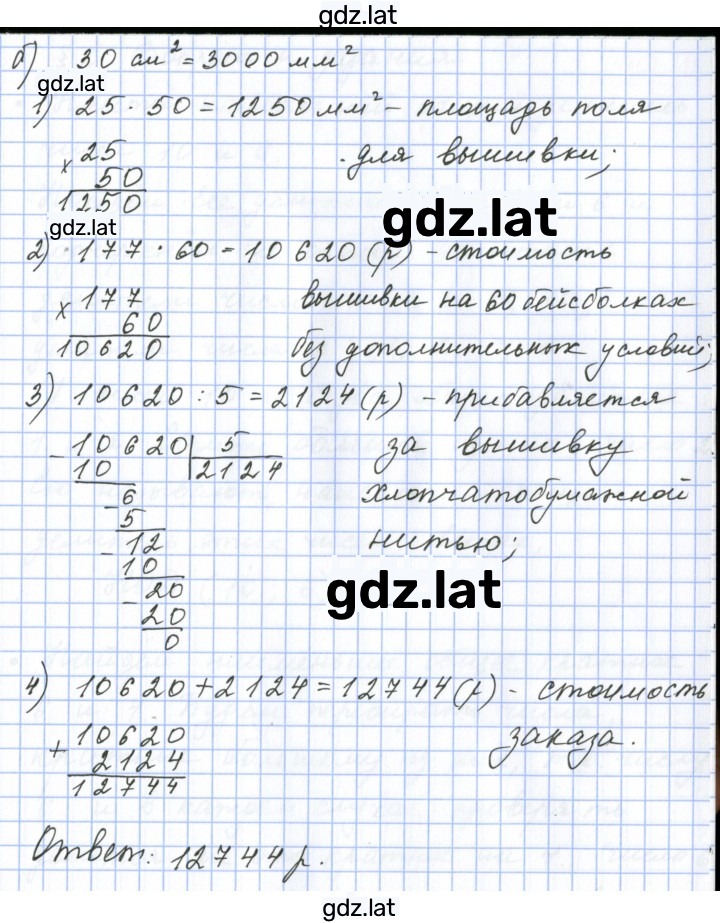 gdz.lat
б) 30 см² = 3000 мм²
gdz.lat
1) 25 · 50 = 1250 мм² – площадь поля
для вышивки;
× 25
50
1250
gdz.lat
gdz.lat
2) 177 · 60 = 10620 (р) – стоимость
вышивки на 60 бейсболках
без дополнительных условий;
× 177
60
10620
3) 10620 : 5 = 2124 (р) – прибавляется
за вышивку
хлопчатобумажной
нитью;
– 10620 | 5
10 2124
– 6
5
– 12
10
– 20
20
0
gdz.lat
4) 10620 + 2124 = 12744 (р) – стоимость
заказа.
+ 10620
2124
12744
Ответ: 12744 р.
gdz.lat